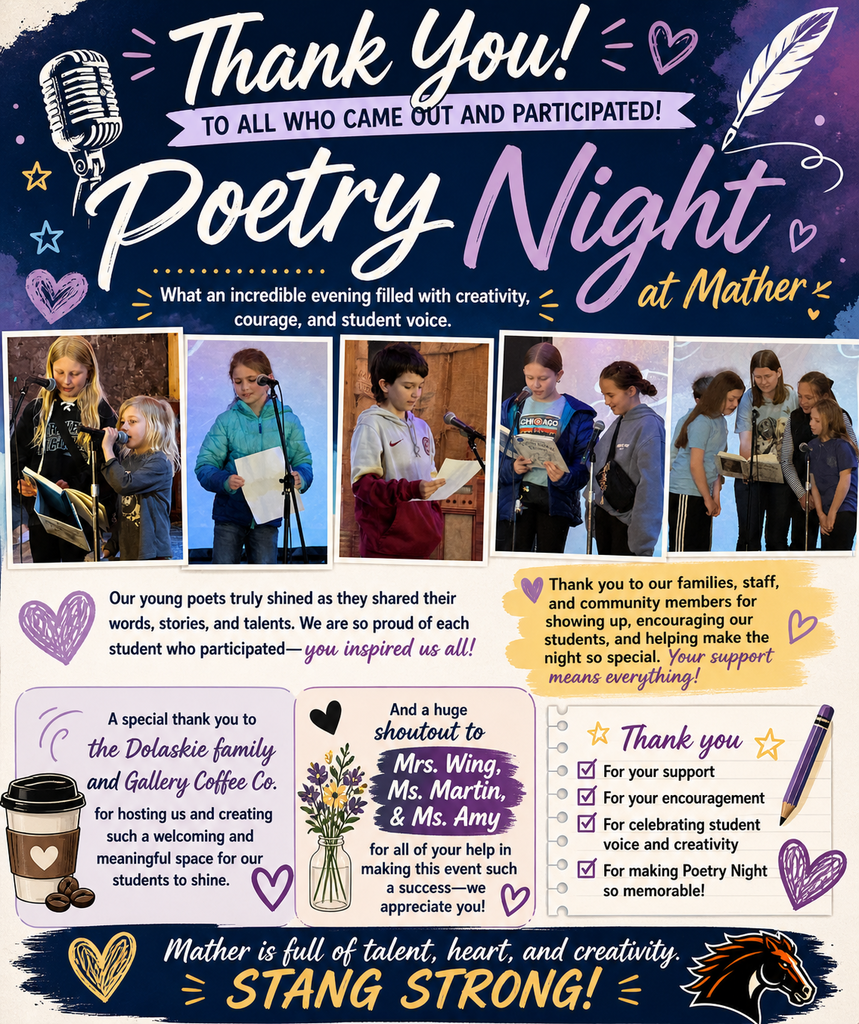 Thank You!
TO ALL WHO CAME OUT AND PARTICIPATED!
Poetry Night
at Mather
What an incredible evening filled with creativity,
courage, and student voice.
CHICAGO
Our young poets truly shined as they shared their
words, stories, and talents. We are so proud of each
student who participated—you inspired us all!
Thank you to our families, staff,
and community members for
showing up, encouraging our
students, and helping make the
night so special. Your support
means everything!
A special thank you to
the Dolaskie family
and Gallery Coffee Co.
for hosting us and creating
such a welcoming and
meaningful space for our
students to shine.
And a huge
shoutout to
Mrs. Wing,
Ms. Martin,
& Ms. Amy
for all of your help in
making this event such
a success—we
appreciate you!
Thank you
For your support
For your encouragement
For celebrating student
voice and creativity
For making Poetry Night
so memorable!
Mather is full of talent, heart, and creativity.
STANG STRONG!